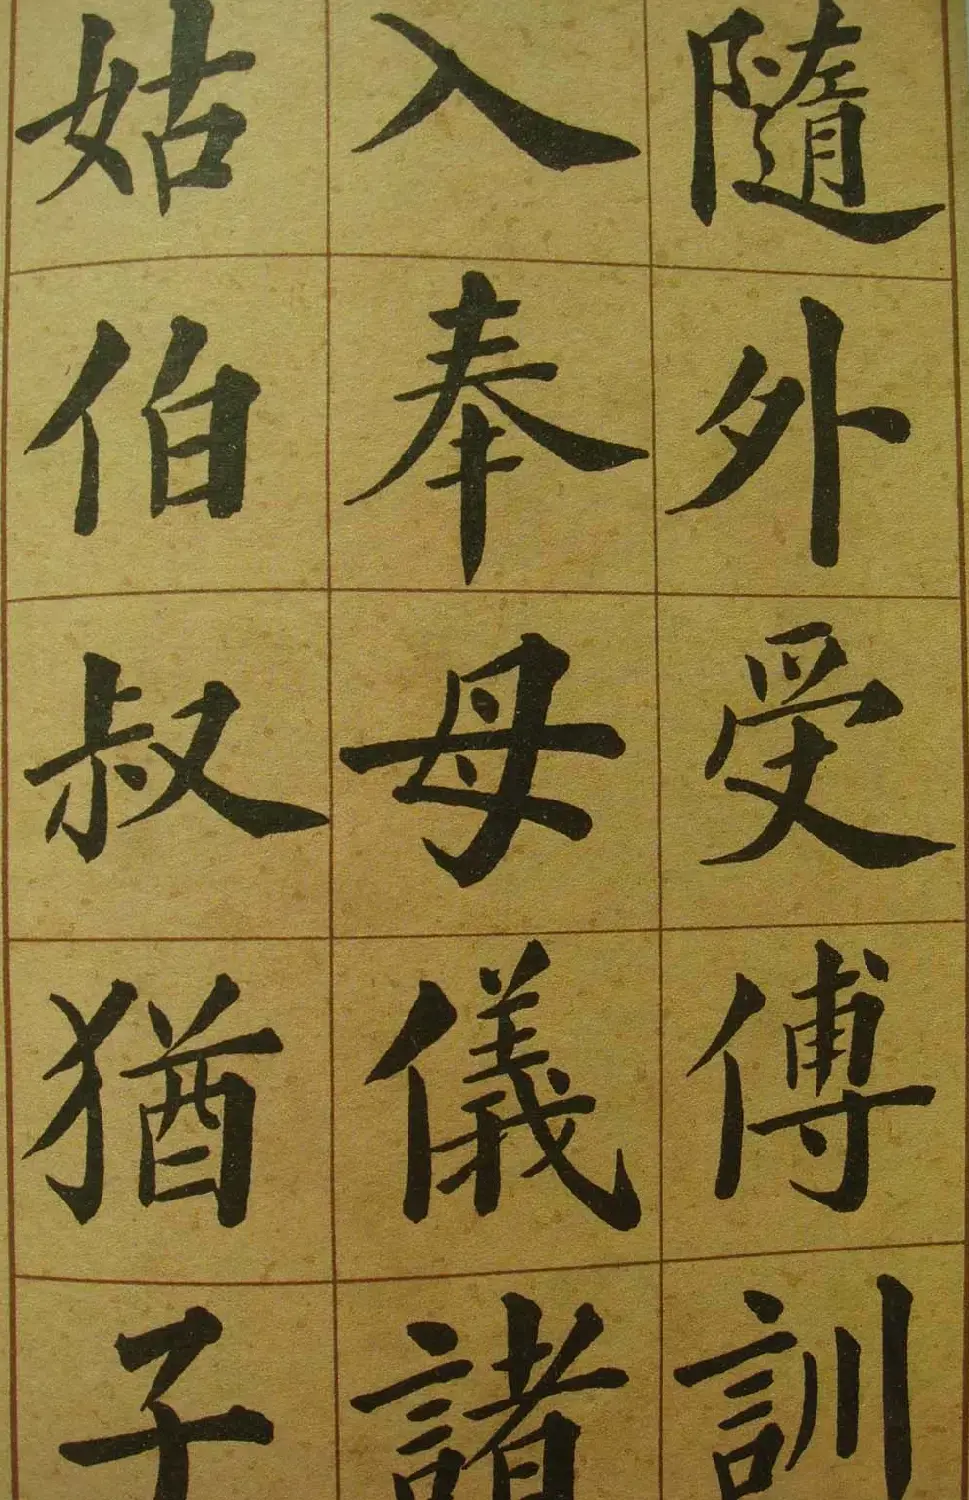 隨外受傅訓
入奉母儀諸
姑伯叔猶子